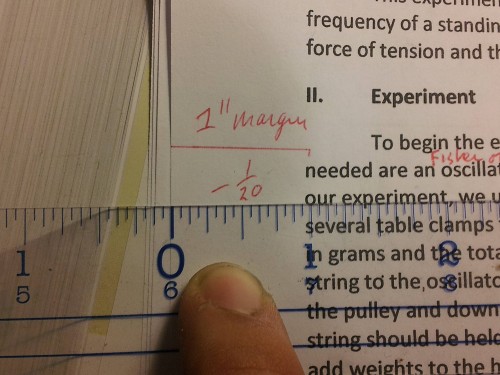 This experimen
frequency of a standin
force of tension and th
II. Experiment
1" margin
To begin the e
Fisher
needed are an oscillat
- 1/20
our experiment, we u
several table clamps
in grams and the tota
string to the oscillato
the pulley and down
string should be held
add weights to the h
1 0 1 2
5 6 7 8